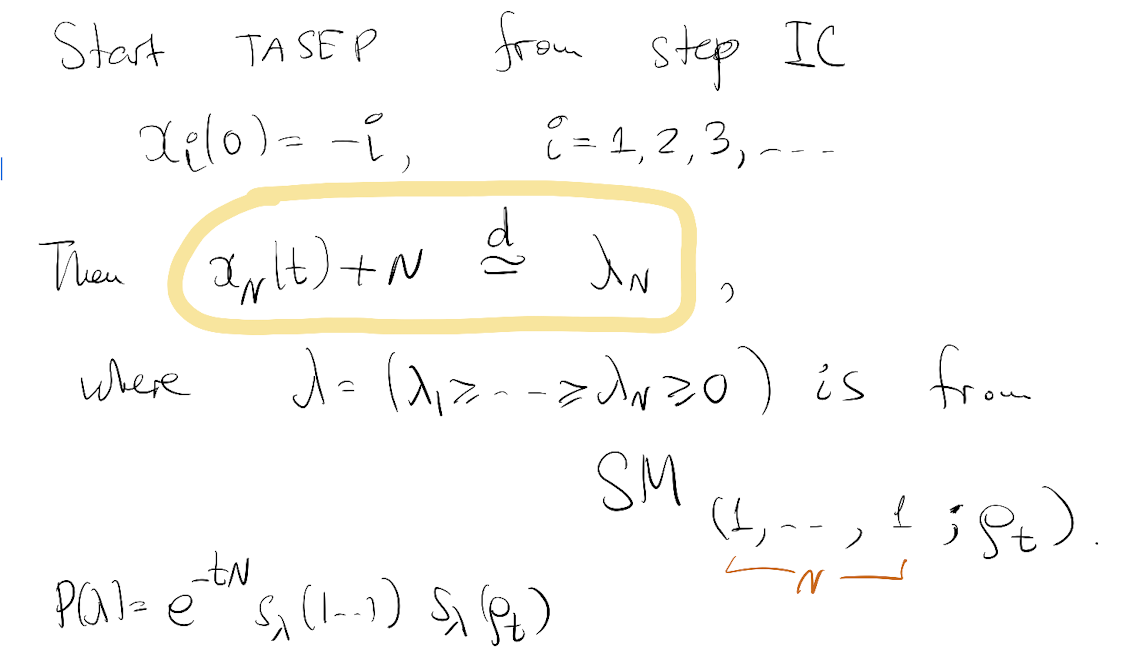 Start TASEP from step IC
x_i(0) = -i, i = 1, 2, 3, ---
Then x_N(t) + N ≃^d λ_N ,
where λ = (λ_1 ≥ --- ≥ λ_N ≥ 0) is from
SM (1, --- , 1 ; ρ_t) .
N
P(λ) = e^{-tN} s_λ (1---1) s_λ (ρ_t)